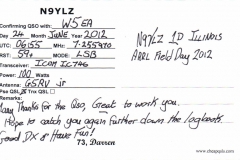 N9YLZ
Confirming QSO with W5EA
Day 24 Month June Year 2012
UTC 0655 MHz 7.255970
RST 59+ Mode LSB
Transceiver ICOM IC746
Power 100 Watts
Antenna G5RV jr
Pse QSL Tnx QSL
Remarks
Many Thanks for the QSO, Great to work you.
Hope to catch you again further down the logbooks.
Good DX & Have Fun!
73, Darren
N9YLZ 1D Illinois
ARRL Field Day 2012
© www.cheapqsls.com